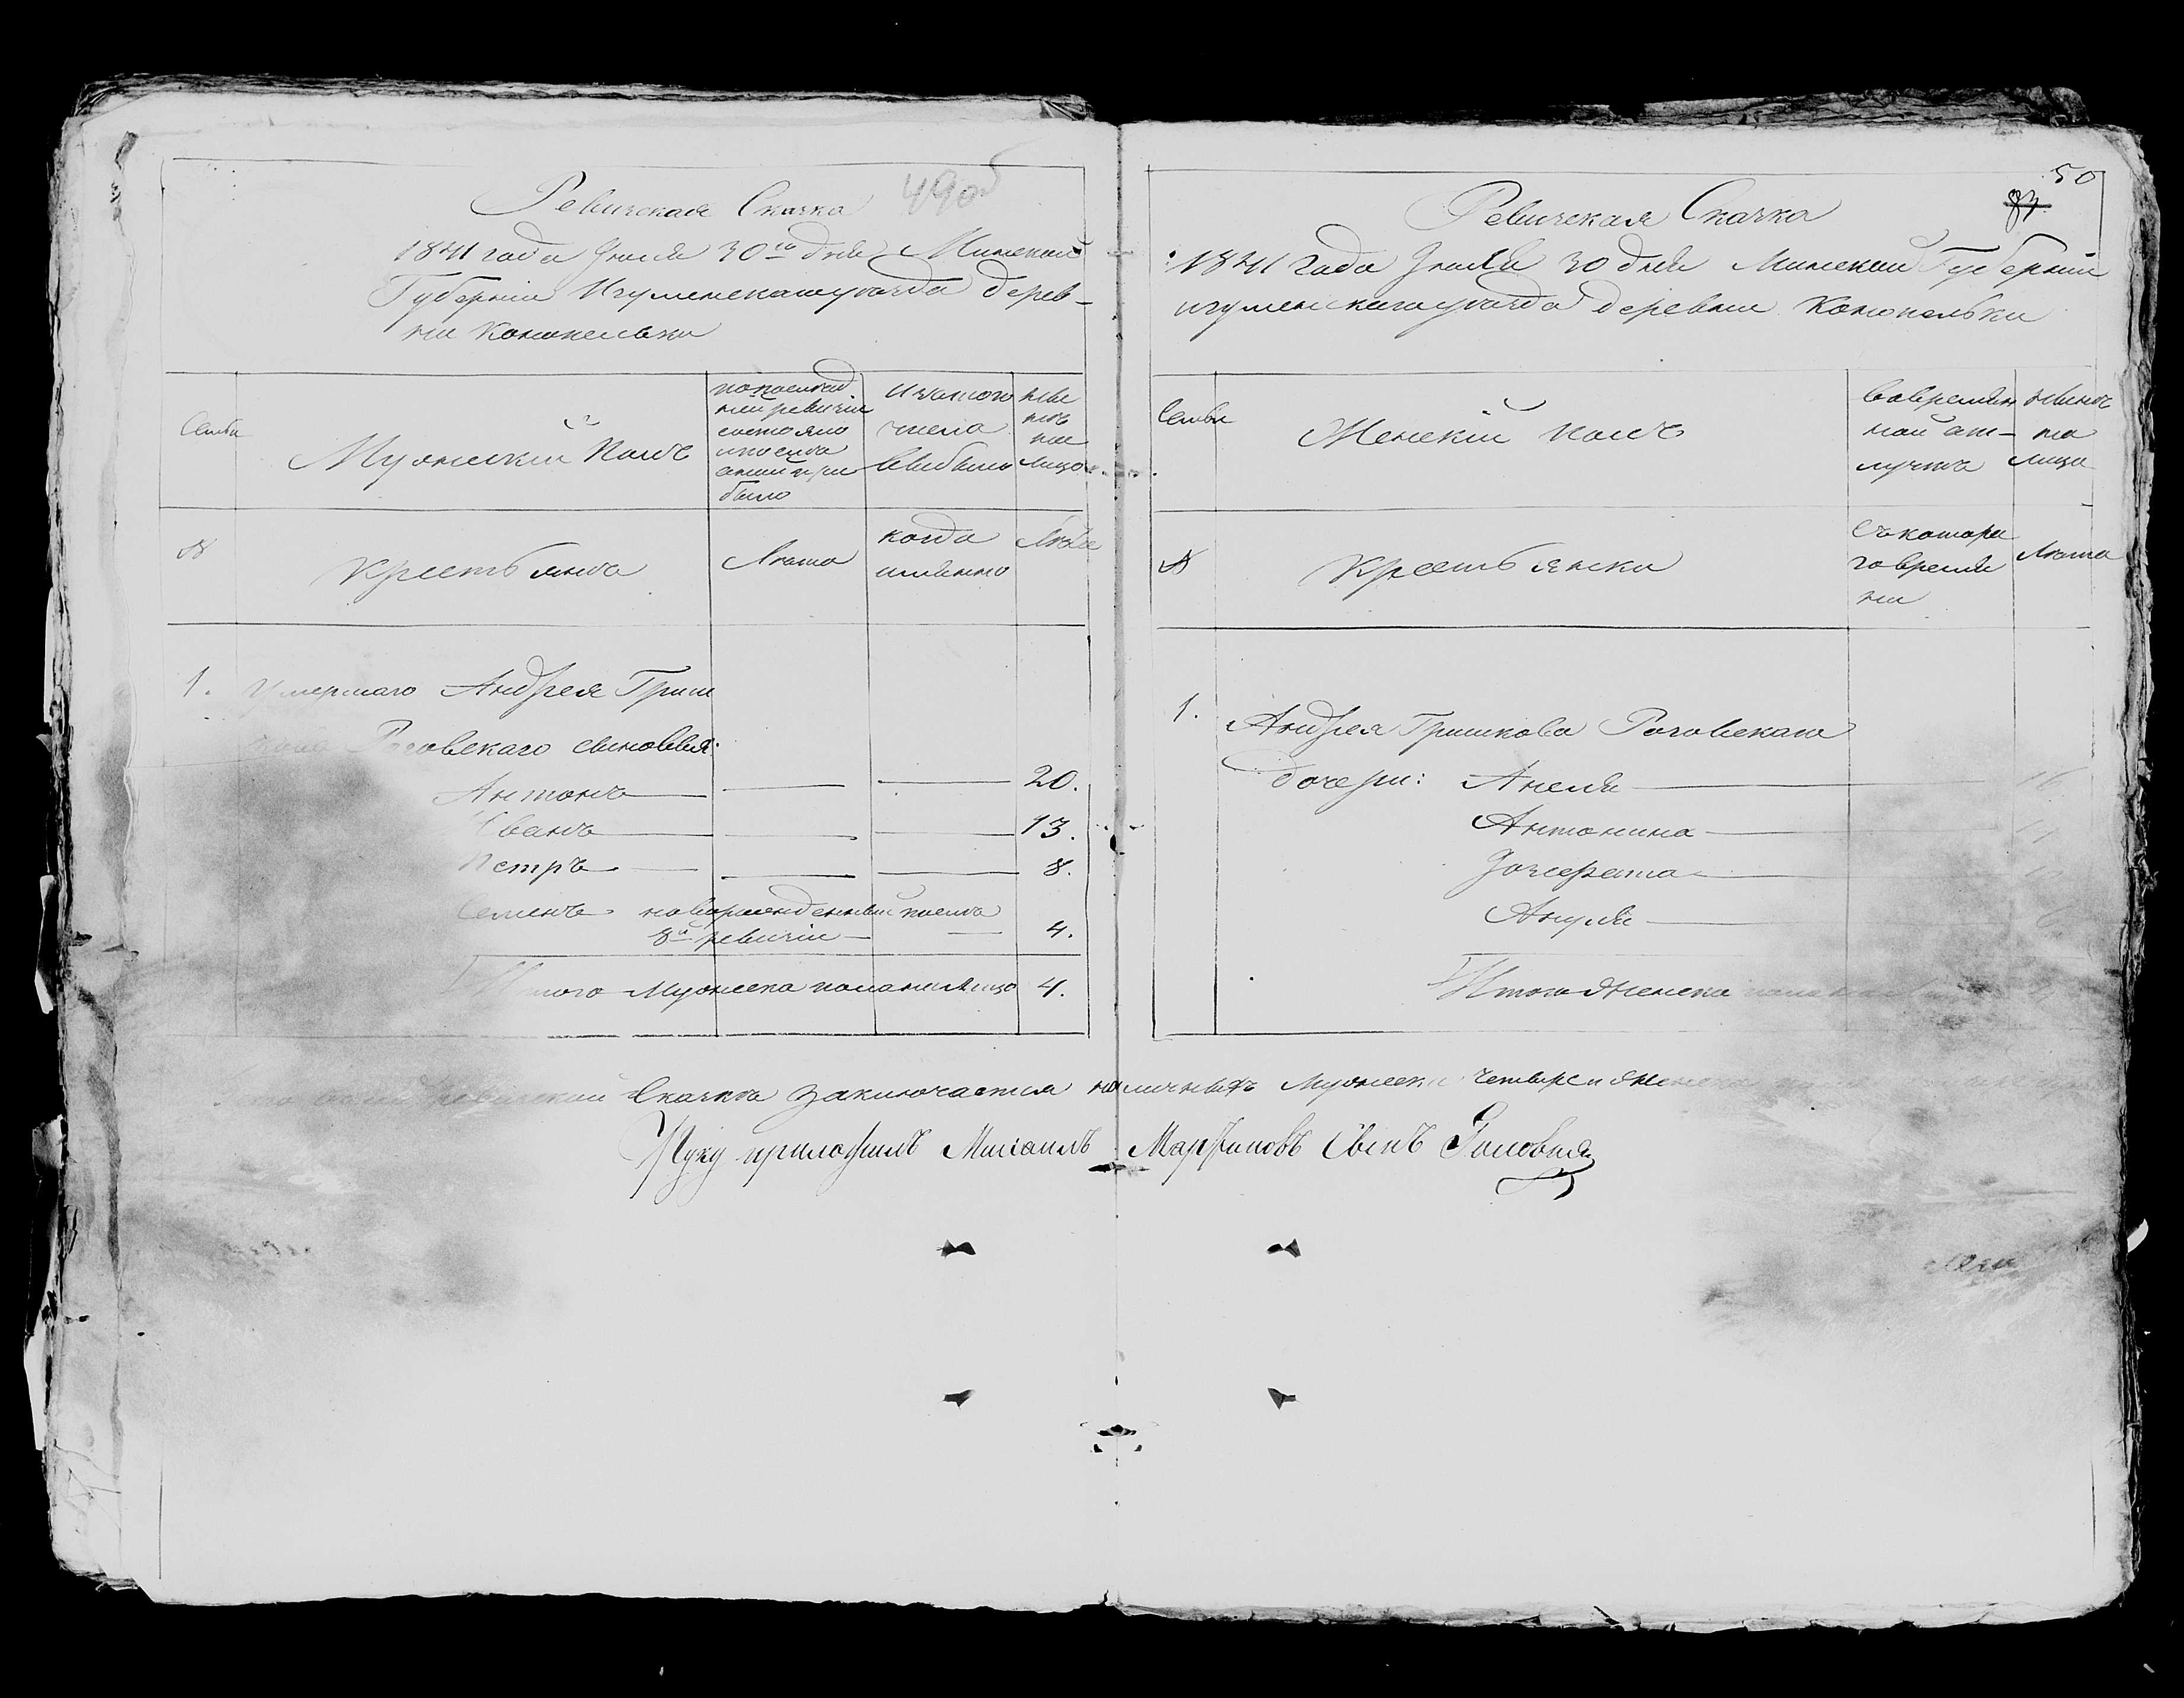 49об
Ревизская Сказка
1841 года Июля 30го дня Минской
Губерніи Игуменскаго уѣзда дерев-
ни Конопельки
Семьи
Мужескій полъ
по послѣд
ней ревизіи
состояло
и послѣ
оной при
было
Изъ того
числа
выбыло
Ныне
на
лицо
№
Крестьяне
Лѣта
когда
именно
Лѣта
1. Умершаго Андрея Гриш
кова Роговскаго сыновья:
Антонъ 20.
Иванъ 13.
Петръ 8.
Семенъ новорожденный послѣ
8й ревизіи 4.
Итого Мужеска пола на лицо 4.
50
83
Ревизская Сказка
1841 года Июля 30 дня Минской Губерніи
игуменскаго уѣзда деревни Конопельки
Семьи
Женскій полъ
Во времен
ной от-
лучкѣ
Нынѣ
на
лицо
№
Крестьянки
Съ котора
го време
ни
Лѣта
1. Андрея Гришкова Роговскаго
дочери: Анеля 16
Антонина
Іозефата
Ануля 6
Итого Женска пола на
ревизской Сказкѣ заключается наличныхъ Мужеска четыре и женска
Руку приложилъ Михаилъ Мартиновъ Сынъ Головня